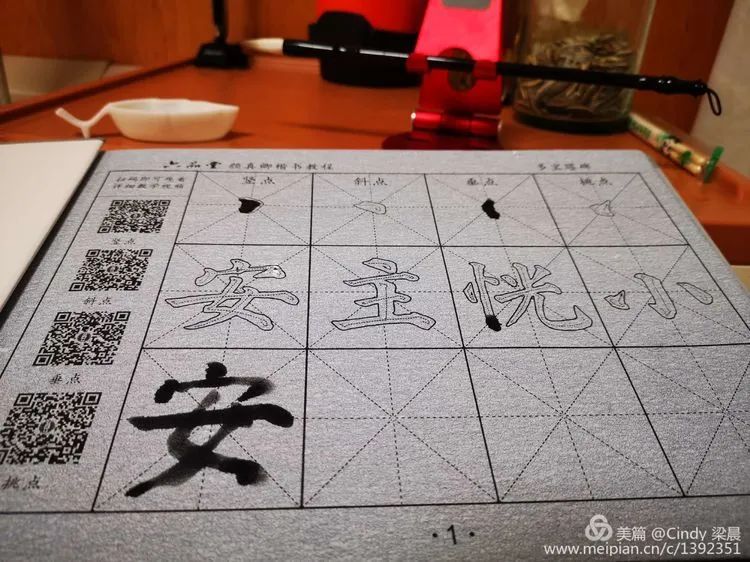 六品堂 颜真卿楷书教程
扫码即可观看
详细教学视频
竖点 斜点 垂点 挑点
竖点
斜点
垂点
挑点
安 主 恍 小
安
·1·
美篇 @Cindy 梁晨
www.meipian.cn/c/1392351